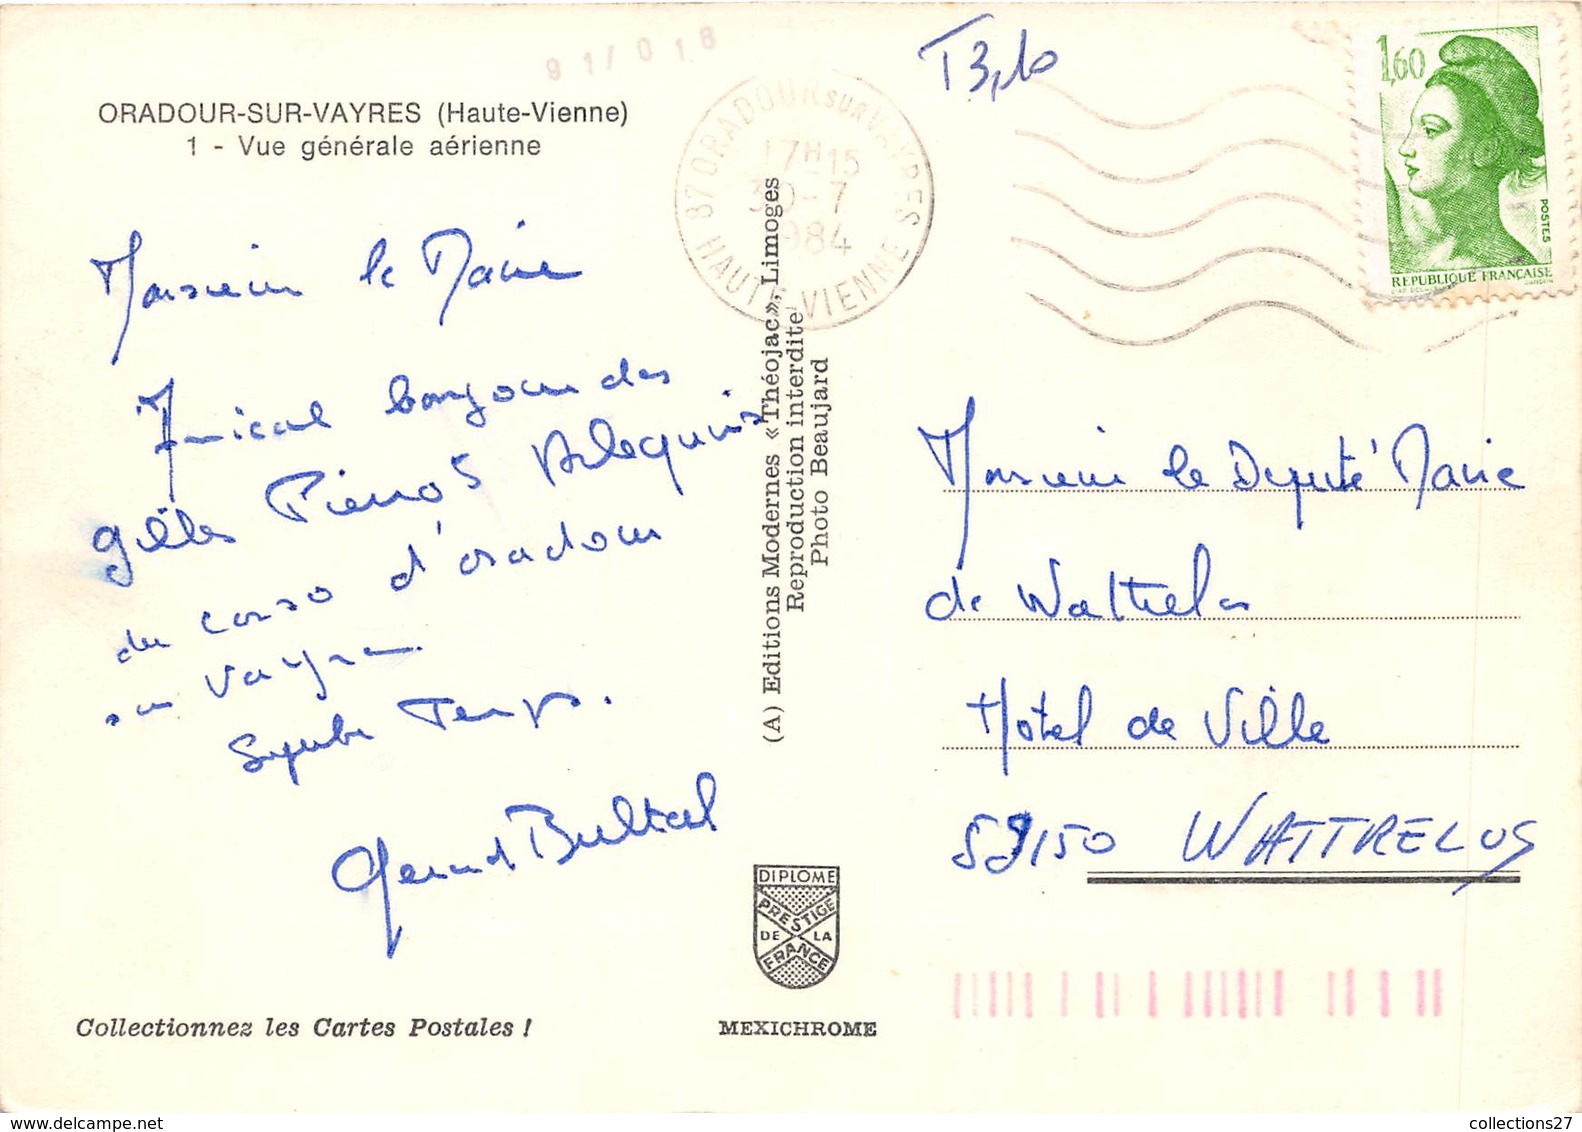 91/018
ORADOUR-SUR-VAYRES (Haute-Vienne)
1 - Vue générale aérienne
Monsieur le Maire
Amical bonjour des
gilles Pierrots Arlequins
du corso d'oradour
sur Vayres.
Superbe Temps.
Gérard
Collectionnez les Cartes Postales !
87 ORADOUR SUR VAYRES
17H15
30-7
1984
HAUTE-VIENNE
(A) Editions Modernes «Théojac», Limoges
Reproduction interdite
Photo Beaujard
DIPLOME
PRESTIGE
DE LA
FRANCE
MEXICHROME
T 3,10
1,60
POSTES
REPUBLIQUE FRANÇAISE
Monsieur le Député Maire
de Wattrelos
Hôtel de Ville
59150 WATTRELOS
collections27